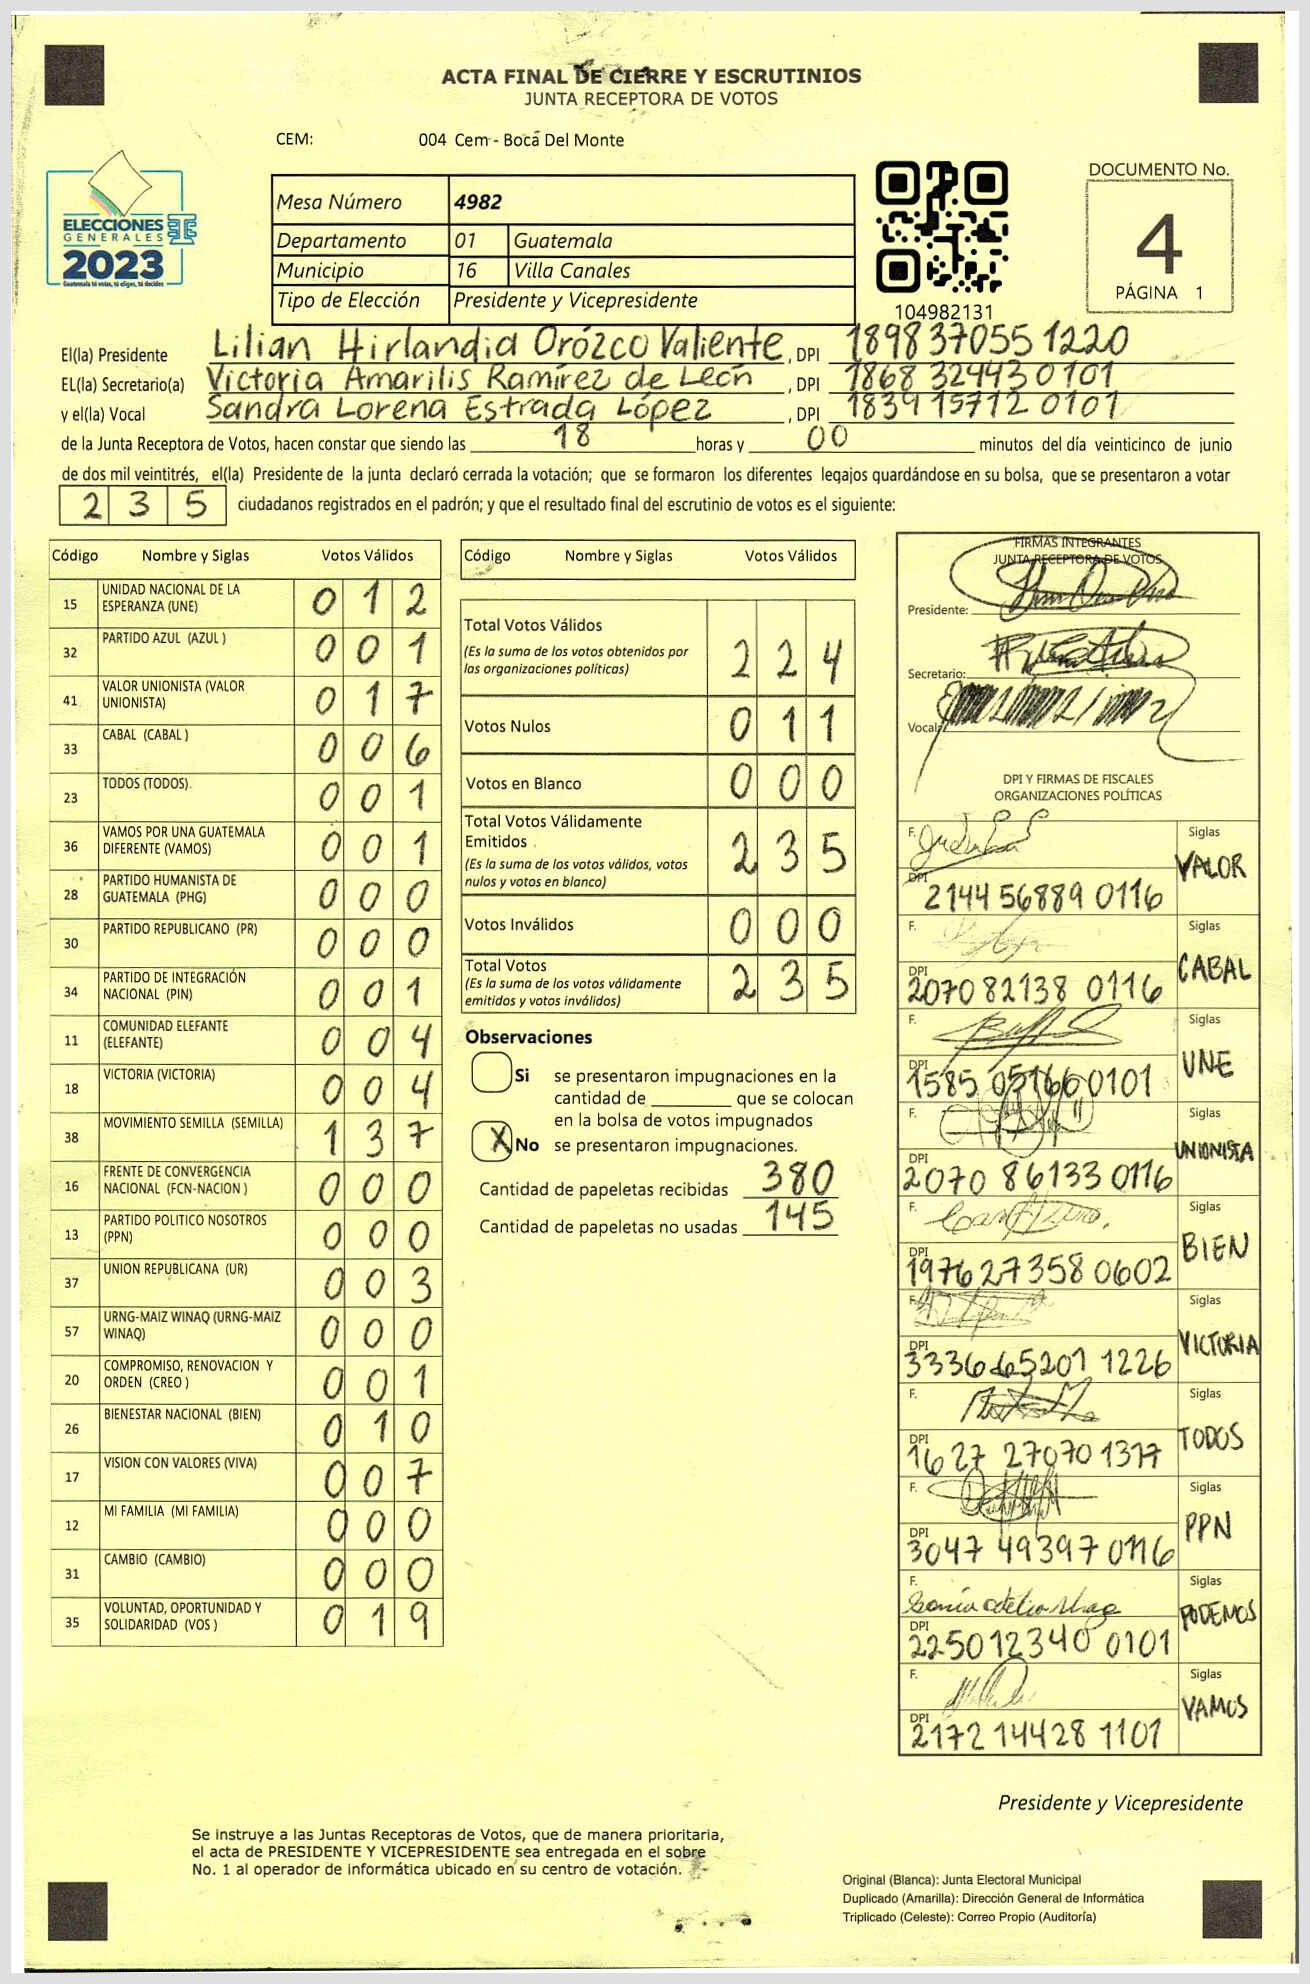 ACTA FINAL DE CIERRE Y ESCRUTINIOS
JUNTA RECEPTORA DE VOTOS
CEM: 004 Cem - Boca Del Monte
ELECCIONES
GENERALES
2023
Guatemala tú votas, tú eliges, tú decides
Mesa Número 4982
Departamento 01 Guatemala
Municipio 16 Villa Canales
Tipo de Elección Presidente y Vicepresidente
104982131
DOCUMENTO No.
4
PÁGINA 1
El(la) Presidente Lilian Hirlandia Orózco Valiente, DPI 1898 37055 1220
EL(la) Secretario(a) Victoria Amarilis Ramírez de León, DPI 1868 32443 0101
y el(la) Vocal Sandra Lorena Estrada López, DPI 1839 15712 0101
de la Junta Receptora de Votos, hacen constar que siendo las 18 horas y 00 minutos del día veinticinco de junio
de dos mil veintitrés, el(la) Presidente de la junta declaró cerrada la votación; que se formaron los diferentes legajos guardándose en su bolsa, que se presentaron a votar
235 ciudadanos registrados en el padrón; y que el resultado final del escrutinio de votos es el siguiente:
Código Nombre y Siglas Votos Válidos
15 UNIDAD NACIONAL DE LA ESPERANZA (UNE) 012
32 PARTIDO AZUL (AZUL ) 001
41 VALOR UNIONISTA (VALOR UNIONISTA) 017
33 CABAL (CABAL ) 006
23 TODOS (TODOS) 001
36 VAMOS POR UNA GUATEMALA DIFERENTE (VAMOS) 001
28 PARTIDO HUMANISTA DE GUATEMALA (PHG) 000
30 PARTIDO REPUBLICANO (PR) 000
34 PARTIDO DE INTEGRACIÓN NACIONAL (PIN) 001
11 COMUNIDAD ELEFANTE (ELEFANTE) 004
18 VICTORIA (VICTORIA) 004
38 MOVIMIENTO SEMILLA (SEMILLA) 137
16 FRENTE DE CONVERGENCIA NACIONAL (FCN-NACION ) 000
13 PARTIDO POLITICO NOSOTROS (PPN) 000
37 UNION REPUBLICANA (UR) 003
57 URNG-MAIZ WINAQ (URNG-MAIZ WINAQ) 000
20 COMPROMISO, RENOVACION Y ORDEN (CREO ) 001
26 BIENESTAR NACIONAL (BIEN) 010
17 VISION CON VALORES (VIVA) 007
12 MI FAMILIA (MI FAMILIA) 000
31 CAMBIO (CAMBIO) 000
35 VOLUNTAD, OPORTUNIDAD Y SOLIDARIDAD (VOS ) 019
Código Nombre y Siglas Votos Válidos
Total Votos Válidos 224
(Es la suma de los votos obtenidos por
las organizaciones políticas)
Votos Nulos 011
Votos en Blanco 000
Total Votos Válidamente
Emitidos 235
(Es la suma de los votos válidos, votos
nulos y votos en blanco)
Votos Inválidos 000
Total Votos 235
(Es la suma de los votos válidamente
emitidos y votos inválidos)
Observaciones
Si se presentaron impugnaciones en la
cantidad de ________ que se colocan
en la bolsa de votos impugnados
X No se presentaron impugnaciones.
Cantidad de papeletas recibidas 380
Cantidad de papeletas no usadas 145
FIRMAS INTEGRANTES
JUNTA RECEPTORA DE VOTOS
Presidente:
Secretario:
Vocal:
DPI Y FIRMAS DE FISCALES
ORGANIZACIONES POLÍTICAS
F. Siglas
DPI 2144 56889 0116 VALOR
F. Siglas
DPI 2070 82138 0116 CABAL
F. Siglas
DPI 1585 05166 0101 UNE
F. Siglas
DPI 2070 86133 0116 UNIONISTA
F. Siglas
DPI 1976 27358 0602 BIEN
F. Siglas
DPI 3336 65201 1226 VICTORIA
F. Siglas
DPI 1627 27070 1317 TODOS
F. Siglas
DPI 3047 49397 0116 PPN
F. Siglas
DPI 2250 12340 0101 PODEMOS
F. Siglas
DPI 2172 14428 1101 VAMOS
Presidente y Vicepresidente
Se instruye a las Juntas Receptoras de Votos, que de manera prioritaria,
el acta de PRESIDENTE Y VICEPRESIDENTE sea entregada en el sobre
No. 1 al operador de informática ubicado en su centro de votación.
Original (Blanca): Junta Electoral Municipal
Duplicado (Amarilla): Dirección General de Informática
Triplicado (Celeste): Correo Propio (Auditoría)